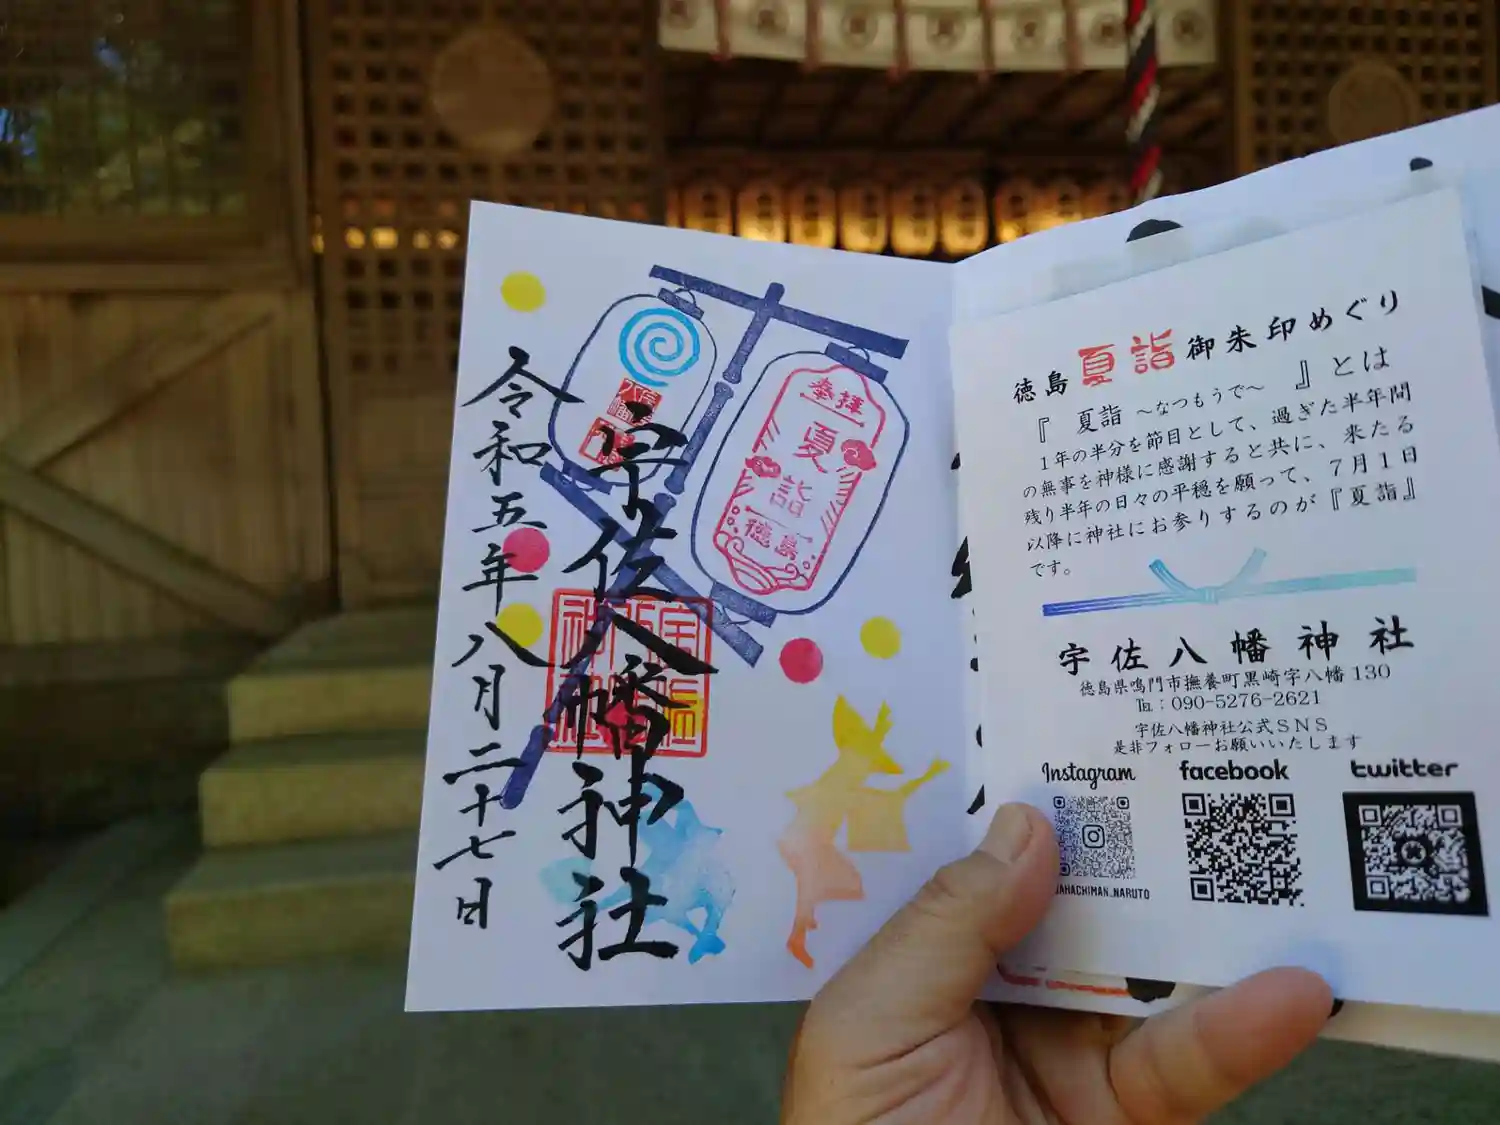 令和五年八月二十七日
宇佐八幡神社
奉拝
夏詣
徳島
徳島夏詣御朱印めぐり
『 夏詣 ～なつもうで～ 』とは
1年の半分を節目として、過ぎた半年間
の無事を神様に感謝すると共に、来たる
残り半年の日々の平穏を願って、7月1日
以降に神社にお参りするのが『夏詣』
です。
宇佐八幡神社
徳島県鳴門市撫養町黒崎字八幡130
℡：090-5276-2621
宇佐八幡神社公式SNS
是非フォローお願いいたします
Instagram
facebook
twitter